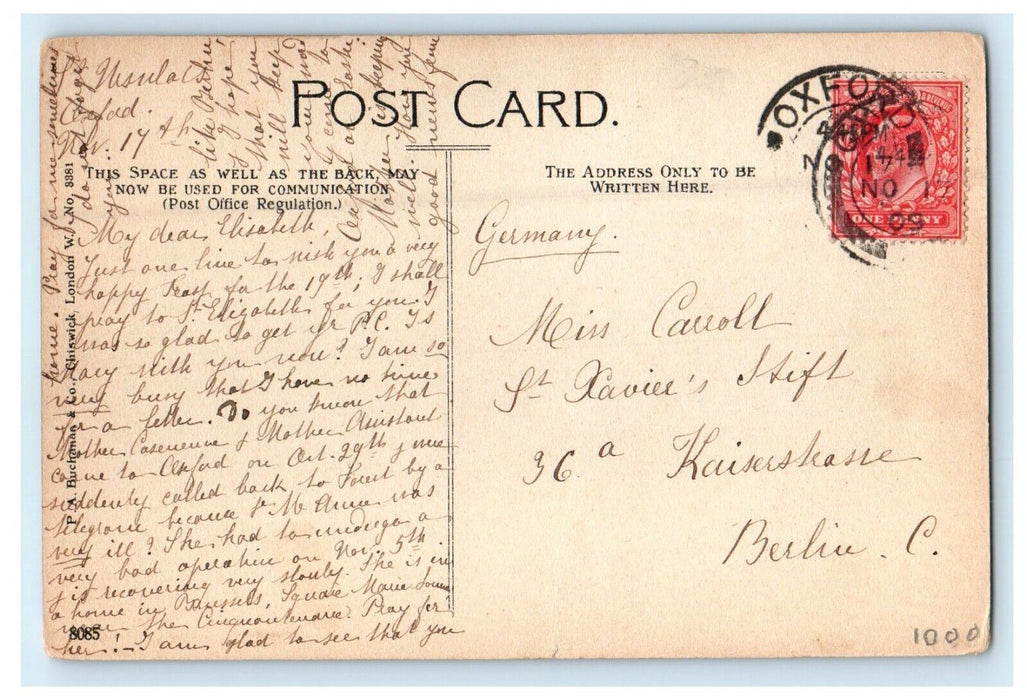 St Ursula's
Oxford.
Nov. 17th
POST CARD.
THIS SPACE AS WELL AS THE BACK, MAY
NOW BE USED FOR COMMUNICATION
(Post Office Regulation.)
THE ADDRESS ONLY TO BE
WRITTEN HERE.
My dear Elisabeth,
Just one line to wish you a very
happy Feast for the 19th, I shall
pray to St Elizabeth for you. I
was so glad to get yr P.C. Is
Mary with you now? I am so
very busy that I have no time
for a letter. Do you know that
Mother & Mother Assistant
came to Oxford on Oct. 29th & were
suddenly called back to Forest by a
telegram because Sr M. Anne was
very ill? She had to undergo a
very bad operation on Nov. 5th
& is recovering very slowly. She is in
a home in Brussels, Square Marie Louise
near the Cinquantenaire. Pray for
her! - I am glad to see that you
like Berlin
& I hope
that you
will keep
Mother is keeping
well. Have you
good news from
home. Pray for me sometimes
& don't forget
your
P. A. Buchanan & Co., Chiswick, London W. No. 3381
8085
Germany.
Miss Carroll
St Xavier's Stift
36 a Kaiserstrasse
Berlin. C.
OXFORD
4.45 PM
17
NO 17
09
ONE PENNY
1000